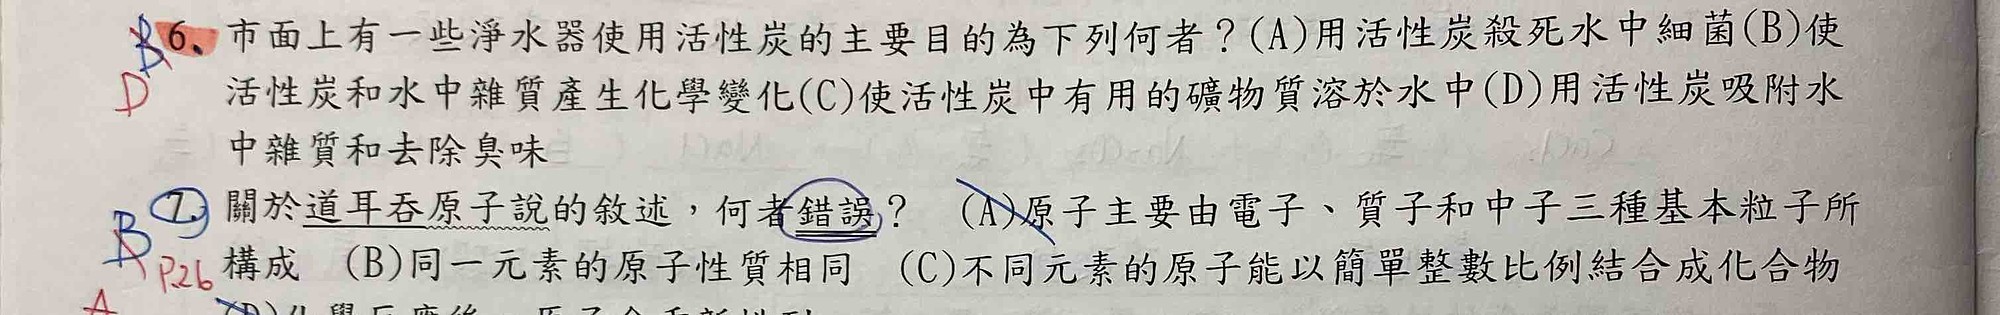 B 6、市面上有一些淨水器使用活性炭的主要目的為下列何者？(A)用活性炭殺死水中細菌(B)使
D 活性炭和水中雜質產生化學變化(C)使活性炭中有用的礦物質溶於水中(D)用活性炭吸附水
中雜質和去除臭味
B 7.關於道耳吞原子說的敘述，何者錯誤？ (A)原子主要由電子、質子和中子三種基本粒子所
P.26 構成 (B)同一元素的原子性質相同 (C)不同元素的原子能以簡單整數比例結合成化合物
A (D)化學反應後，原子會重新排列